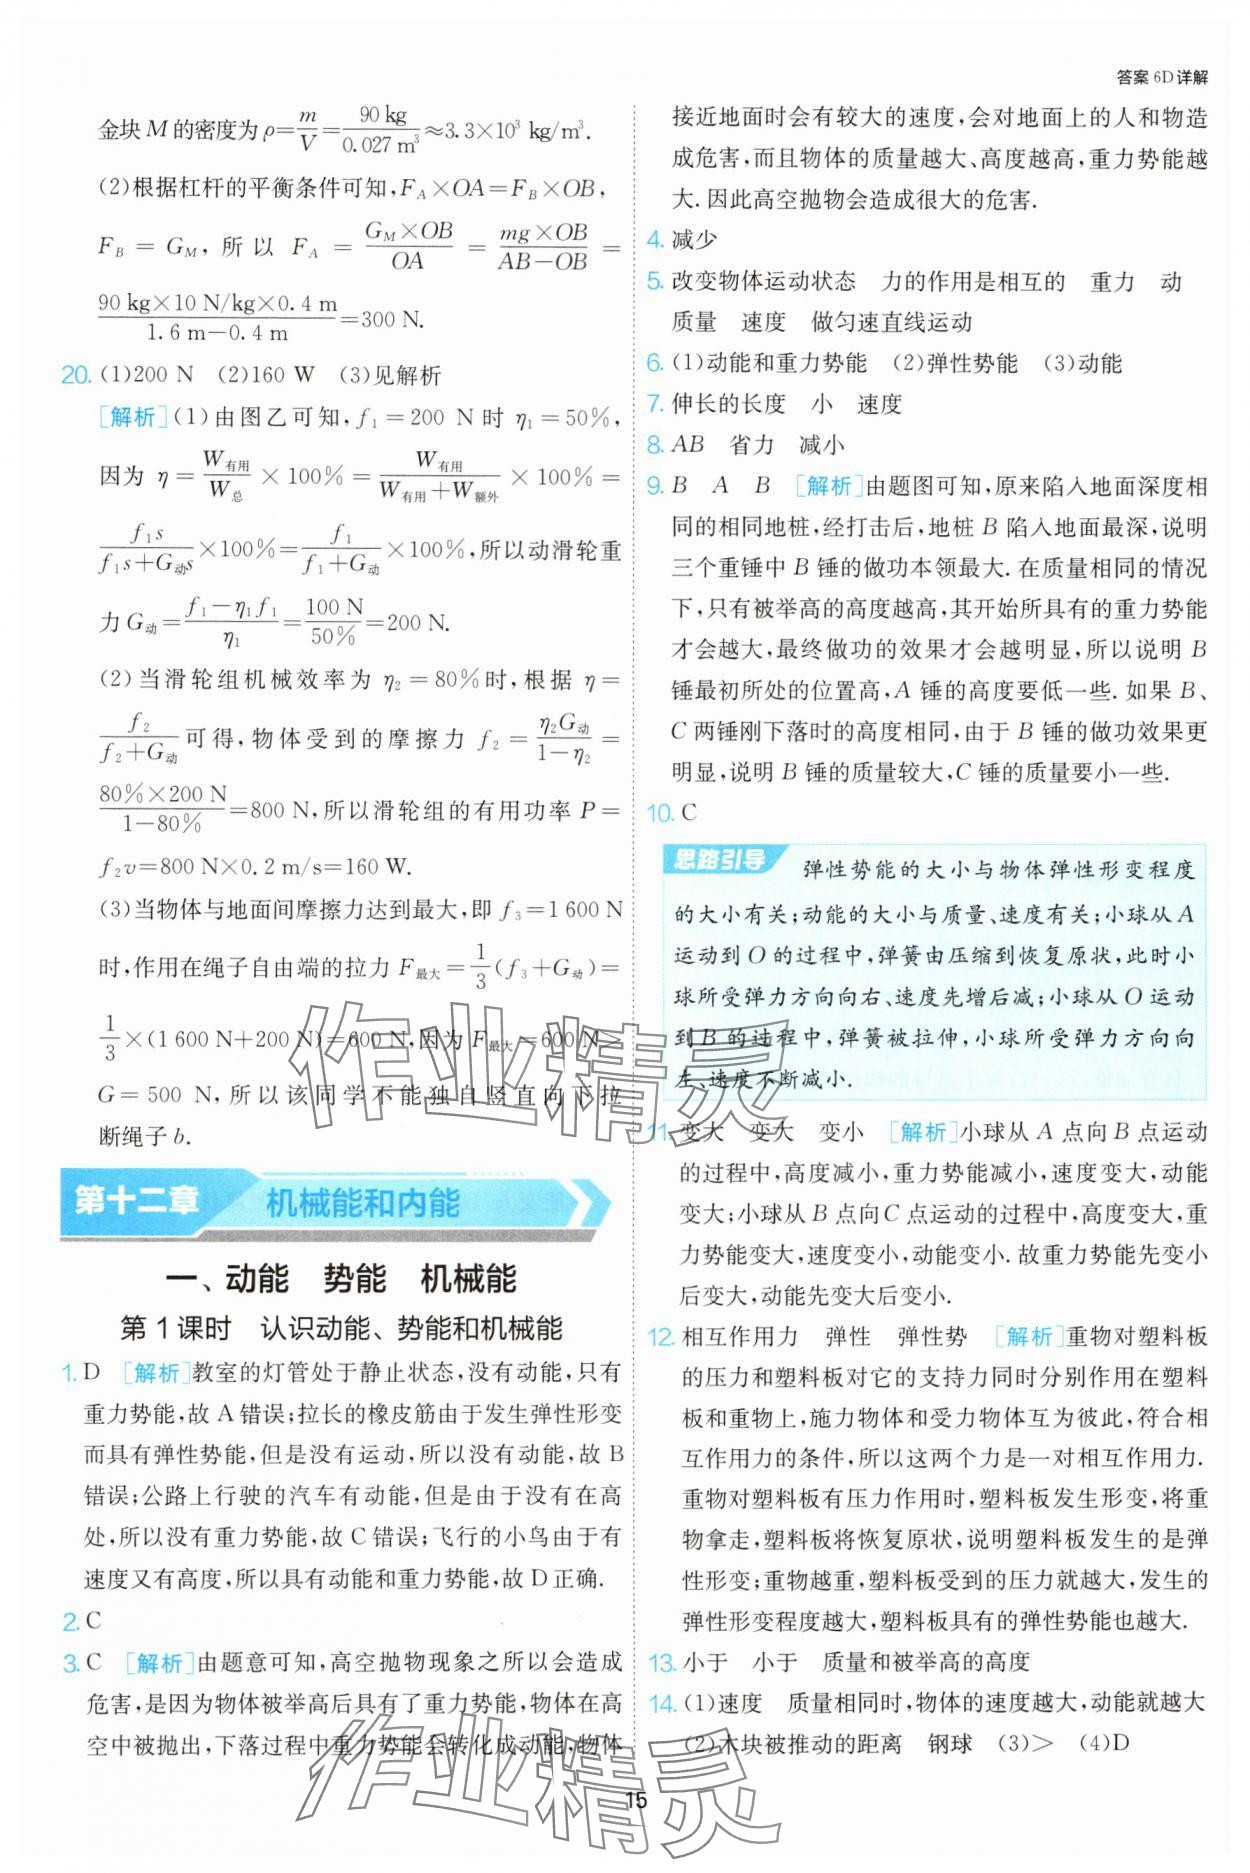 答案 6D 详解
金块 M 的密度为 ρ=m/V=90 kg/0.027 m³≈3.3×10³ kg/m³.
(2)根据杠杆的平衡条件可知,F_A×OA=F_B×OB,
F_B = G_M, 所以 F_A = G_M×OB/OA = mg×OB/AB−OB =
90 kg×10 N/kg×0.4 m/1.6 m−0.4 m=300 N.
20. (1)200 N (2)160 W (3)见解析
[解析](1)由图乙可知, f₁=200 N 时 η₁=50%,
因为 η = W有用/W总 × 100% = W有用/W有用+W额外 × 100% =
f₁s/f₁s+G动s×100%=f₁/f₁+G动×100%,所以动滑轮重
力 G动=f₁−η₁f₁/η₁=100 N/50%=200 N.
(2)当滑轮组机械效率为 η₂=80%时,根据 η=
f₂/f₂+G动可得,物体受到的摩擦力 f₂ = η₂G动/1−η₂ =
80%×200 N/1−80%=800 N,所以滑轮组的有用功率 P=
f₂v=800 N×0.2 m/s=160 W.
(3)当物体与地面间摩擦力达到最大,即 f₃=1 600 N
时,作用在绳子自由端的拉力 F最大=1/3(f₃+G动)=
1/3×(1 600 N+200 N)=600 N,因为 F最大=600 N>
G=500 N,所以该同学不能独自竖直向下拉
断绳子 b.
第十二章 机械能和内能
一、动能 势能 机械能
第 1 课时 认识动能、势能和机械能
1. D [解析]教室的灯管处于静止状态,没有动能,只有
重力势能,故 A 错误;拉长的橡皮筋由于发生弹性形变
而具有弹性势能,但是没有运动,所以没有动能,故 B
错误;公路上行驶的汽车有动能,但是由于没有在高
处,所以没有重力势能,故 C 错误;飞行的小鸟由于有
速度又有高度,所以具有动能和重力势能,故 D 正确.
2. C
3. C [解析]由题意可知,高空抛物现象之所以会造成
危害,是因为物体被举高后具有了重力势能,物体在高
空中被抛出,下落过程中重力势能会转化成动能,物体
接近地面时会有较大的速度,会对地面上的人和物造
成危害,而且物体的质量越大、高度越高,重力势能越
大. 因此高空抛物会造成很大的危害.
4. 减少
5. 改变物体运动状态 力的作用是相互的 重力 动
质量 速度 做匀速直线运动
6. (1)动能和重力势能 (2)弹性势能 (3)动能
7. 伸长的长度 小 速度
8. AB 省力 减小
9. B A B [解析]由题图可知,原来陷入地面深度相
同的相同地桩,经打击后,地桩 B 陷入地面最深,说明
三个重锤中 B 锤的做功本领最大. 在质量相同的情况
下,只有被举高的高度越高,其开始所具有的重力势能
才会越大,最终做功的效果才会越明显,所以说明 B
锤最初所处的位置高,A 锤的高度要低一些. 如果 B、
C 两锤刚下落时的高度相同,由于 B 锤的做功效果更
明显,说明 B 锤的质量较大,C 锤的质量要小一些.
10. C
思路引导 弹性势能的大小与物体弹性形变程度
的大小有关;动能的大小与质量、速度有关;小球从 A
运动到 O 的过程中,弹簧由压缩到恢复原状,此时小
球所受弹力方向向右、速度先增后减;小球从 O 运动
到 B 的过程中,弹簧被拉伸,小球所受弹力方向向
左、速度不断减小.
11. 变大 变大 变小 [解析]小球从 A 点向 B 点运动
的过程中,高度减小,重力势能减小,速度变大,动能
变大;小球从 B 点向 C 点运动的过程中,高度变大,重
力势能变大,速度变小,动能变小. 故重力势能先变小
后变大,动能先变大后变小.
12. 相互作用力 弹性 弹性势 [解析]重物对塑料板
的压力和塑料板对它的支持力同时分别作用在塑料
板和重物上,施力物体和受力物体互为彼此,符合相
互作用力的条件,所以这两个力是一对相互作用力.
重物对塑料板有压力作用时,塑料板发生形变,将重
物拿走,塑料板将恢复原状,说明塑料板发生的是弹
性形变;重物越重,塑料板受到的压力就越大,发生的
弹性形变程度越大,塑料板具有的弹性势能也越大.
13. 小于 小于 质量和被举高的高度
14. (1)速度 质量相同时,物体的速度越大,动能就越大
(2)木块被推动的距离 钢球 (3)> (4)D
作业精灵
作业精灵
15